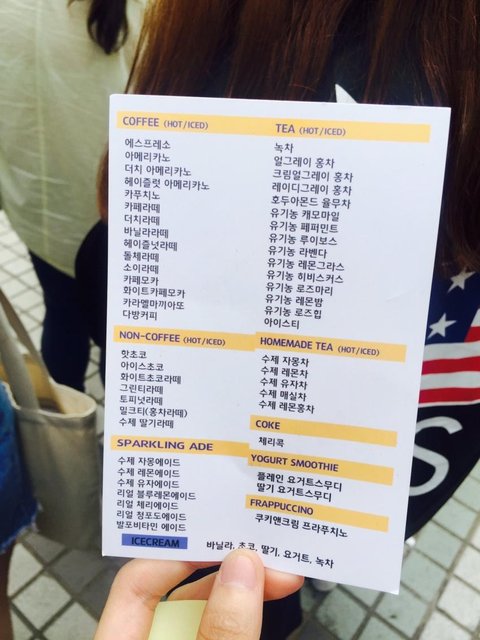 COFFEE (HOT/ICED)
에스프레소
아메리카노
더치 아메리카노
헤이즐럿 아메리카노
카푸치노
카페라떼
더치라떼
바닐라라떼
헤이즐넛라떼
돌체라떼
소이라떼
카페모카
화이트카페모카
카라멜마끼아또
다방커피
NON-COFFEE (HOT/ICED)
핫초코
아이스초코
화이트초코라떼
그린티라떼
토피넛라떼
밀크티(홍차라떼)
수제 딸기라떼
SPARKLING ADE
수제 자몽에이드
수제 레몬에이드
수제 유자에이드
리얼 블루레몬에이드
리얼 체리에이드
리얼 청포도에이드
발포비타민 에이드
TEA (HOT/ICED)
녹차
얼그레이 홍차
크림얼그레이 홍차
레이디그레이 홍차
호두아몬드 율무차
유기농 캐모마일
유기농 페퍼민트
유기농 루이보스
유기농 라벤다
유기농 레몬그라스
유기농 히비스커스
유기농 로즈마리
유기농 레몬밤
유기농 로즈힙
아이스티
HOMEMADE TEA (HOT/ICED)
수제 자몽차
수제 레몬차
수제 유자차
수제 매실차
수제 레몬홍차
COKE
체리콕
YOGURT SMOOTHIE
플레인 요거트스무디
딸기 요거트스무디
FRAPPUCCINO
쿠키앤크림 프라푸치노
ICECREAM
바닐라, 초코, 딸기, 요거트, 녹차
S